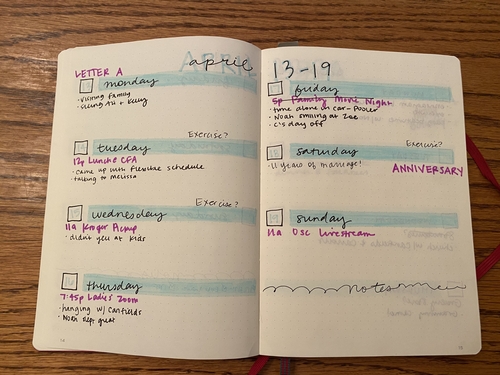 april
LETTER A
monday
· visiting family
· seeing Ali + Kelly
Exercise?
tuesday
12p Lunch@ CFA
· came up with flexible schedule
· talking to Melissa
Exercise?
wednesday
11a Kroger Pickup
· didn't yell at kids
thursday
7:45p Ladies Zoom
· hanging w/ Canfields
· Noah slept great
13-19
friday
5p Family Movie Night
· time alone in car - Power
· Noah smiling at Zoe
· C's day off
Exercise?
saturday
· 11 years of marriage!
ANNIVERSARY
sunday
11a OSC Livestream
notes